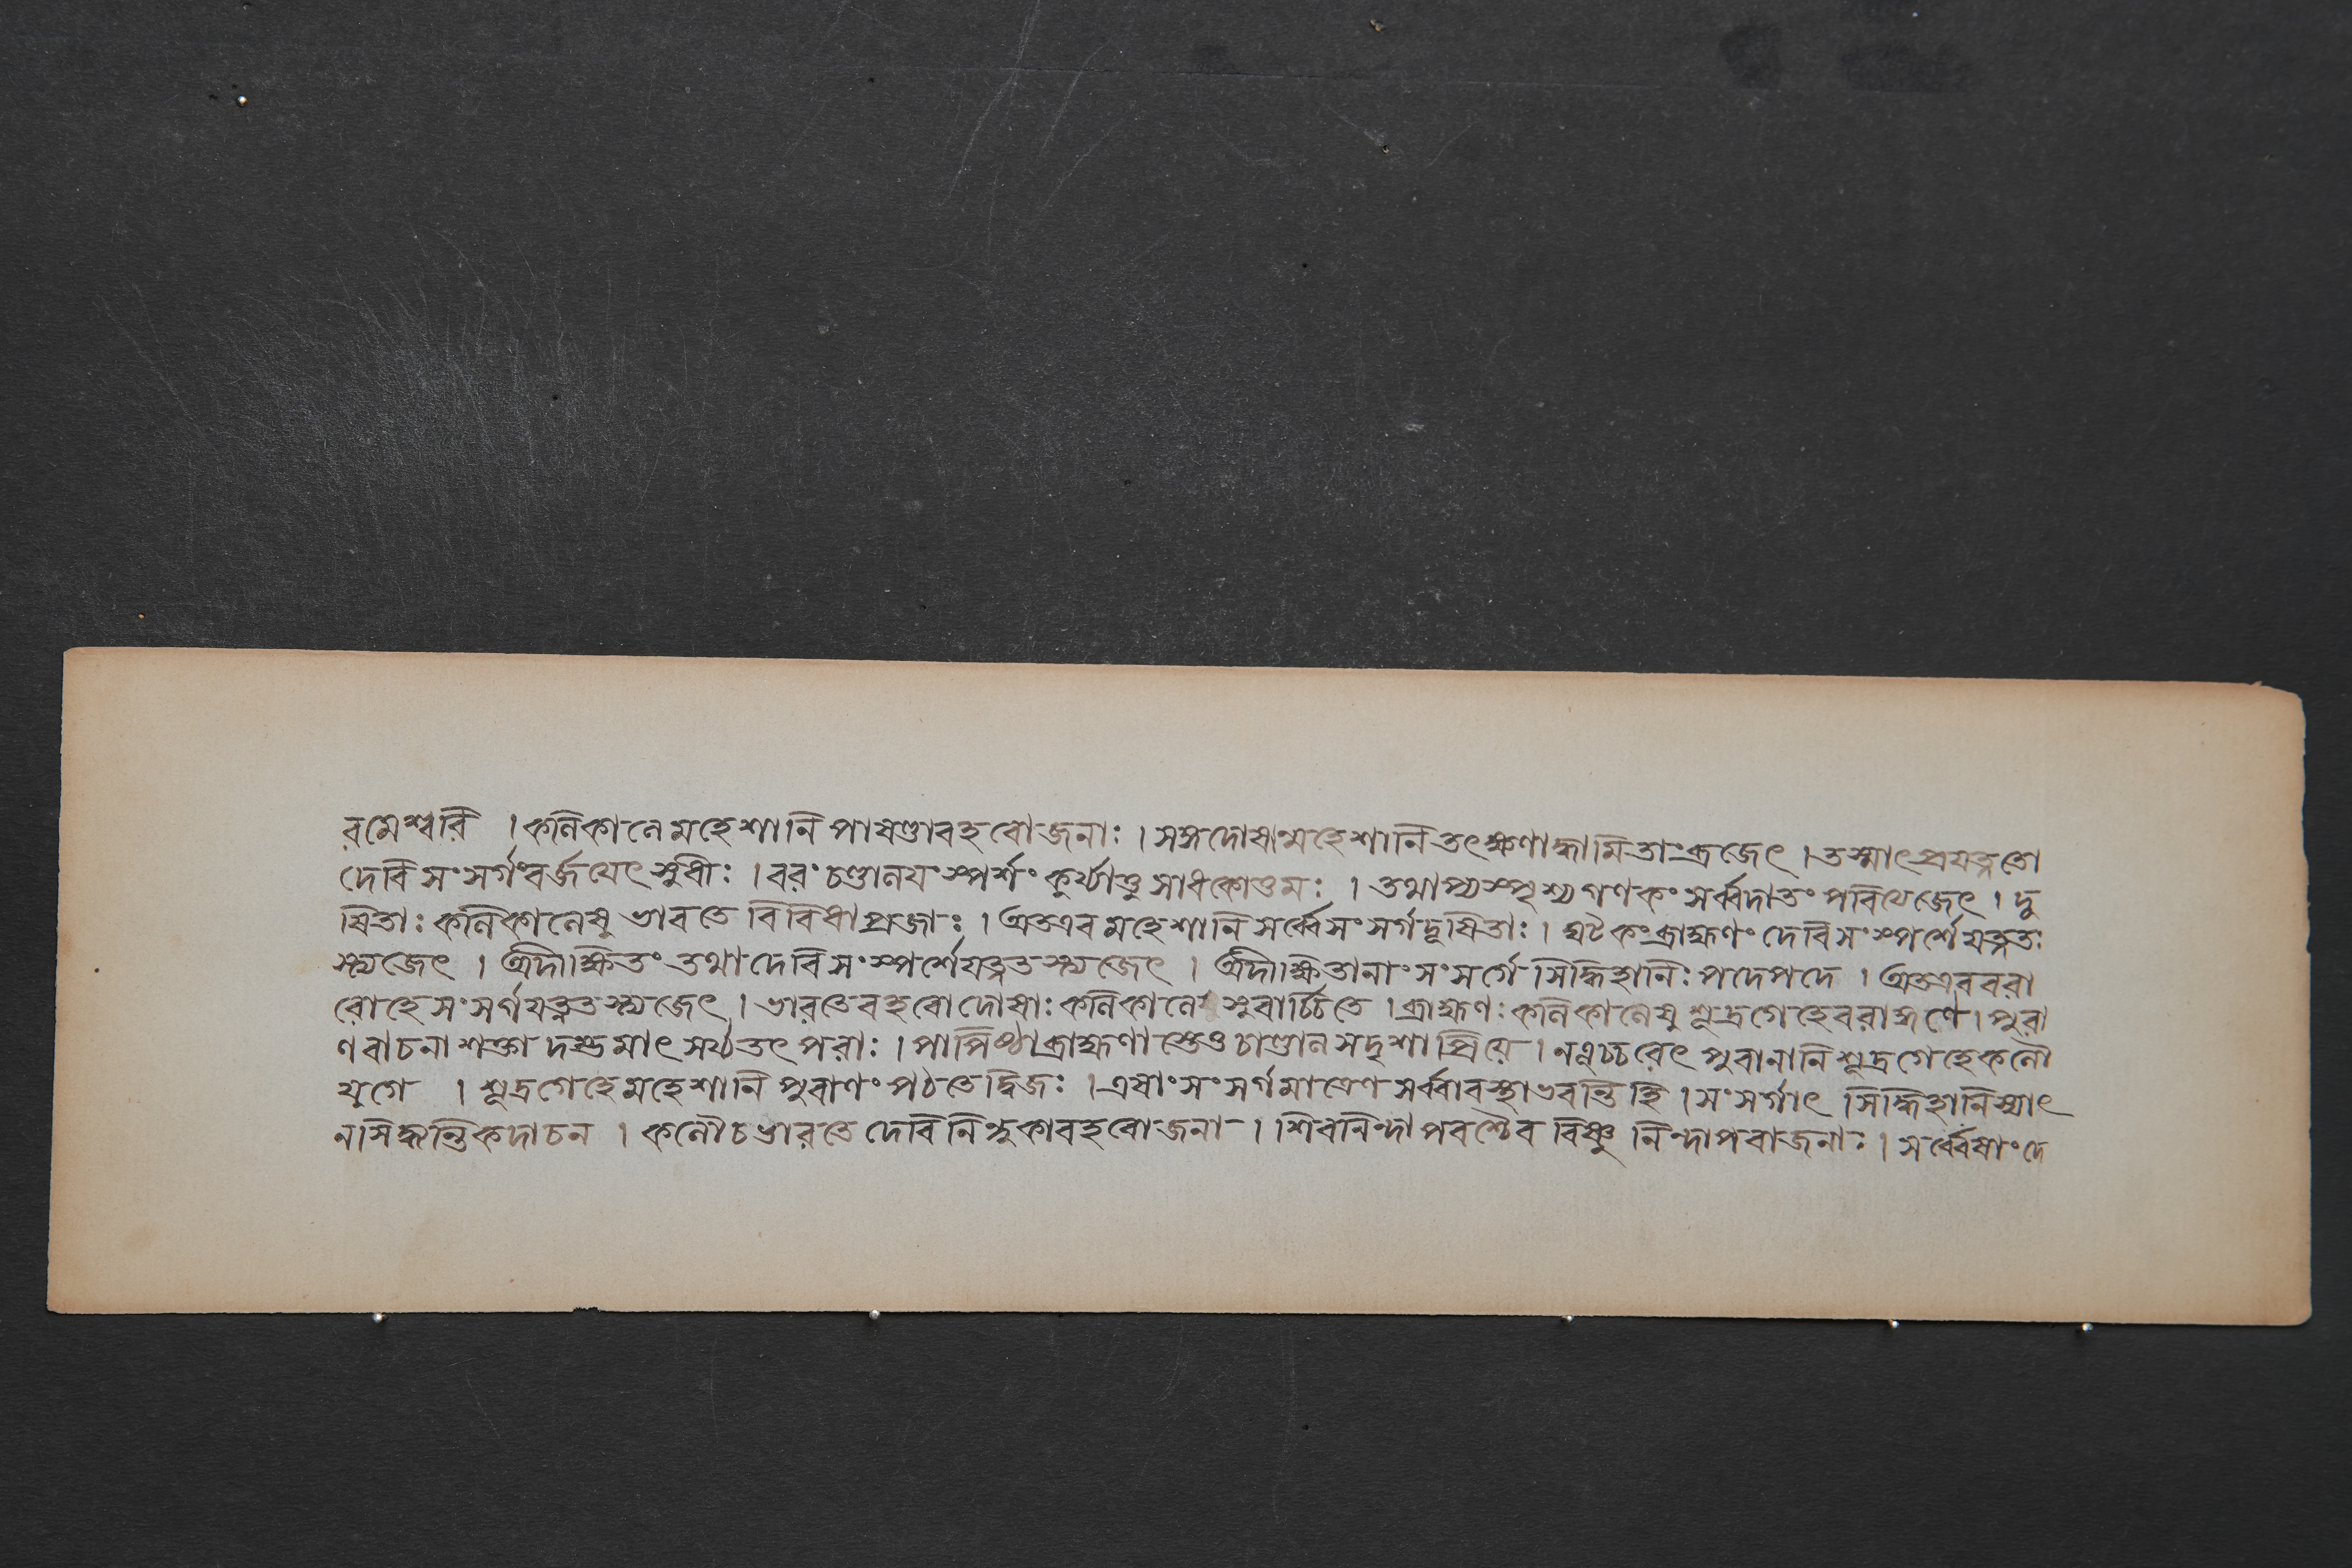 রমেশ্বরি । কলিকালে মহেশানি পাষণ্ডা বহবো জনাঃ । সঙ্গদোষান্মহেশানি তৎক্ষণাদ্ধামিতাং ব্রজেৎ । তস্মাৎ প্রযত্নতো
দেবি সংসর্গং বর্জয়েৎ সুধীঃ । বরং চণ্ডালয় সংস্পর্শং কুর্য্যাত্তু সাধকোত্তমঃ । তথাপ্যস্পৃশ্য গণকং সর্ব্বদা তং পরিত্যেজেৎ । দু
ষিতাঃ কলিকালেষু ভারতে বিবিধা প্রজাঃ । অতএব মহেশানি সর্ব্বে সংসর্গদূষিতাঃ । ঘটকং ব্রাহ্মণং দেবি সংস্পর্শে যত্নত
স্ত্যজেৎ । অদীক্ষিতং তথা দেবি সংস্পর্শে যত্নতস্ত্যজেৎ । অদীক্ষিতানাং সংসর্গে সিদ্ধিহানিঃ পদে পদে । অতএব বরা
রোহে সংসর্গ যত্নতস্ত্যজেৎ । ভারতে বহবো দোষাঃ কলিকালে সুরার্চ্চিতে । ব্রাহ্মণঃ কলিকালেষু শূদ্রগেহে বরাঙ্গণে । পুরা
ণ বাচনাশক্তা দম্ভমাৎসর্য্যতৎপরাঃ । পাপিষ্ঠা ব্রাহ্মণাস্তে ও চাণ্ডালসদৃশা প্রিয়ে । ন চ্চরেৎ পুরানানি শূদ্রগেহে কলৌ
যুগে । শূদ্রগেহে মহেশানি পুরাণং পঠতে দ্বিজঃ । এষাং সংসর্গমাত্রেণ সর্ব্বাবস্থা ভবন্তি হি । সংসর্গাৎ সিদ্ধিহানিস্যাৎ
ন সিদ্ধন্তি কদাচন । কলৌ চ ভারতে দেবি নিন্দুকা বহবো জনা । শিবনিন্দাপরশ্চৈব বিষ্ণু নিন্দাপরাজনাঃ । সর্ব্বেষাং দে